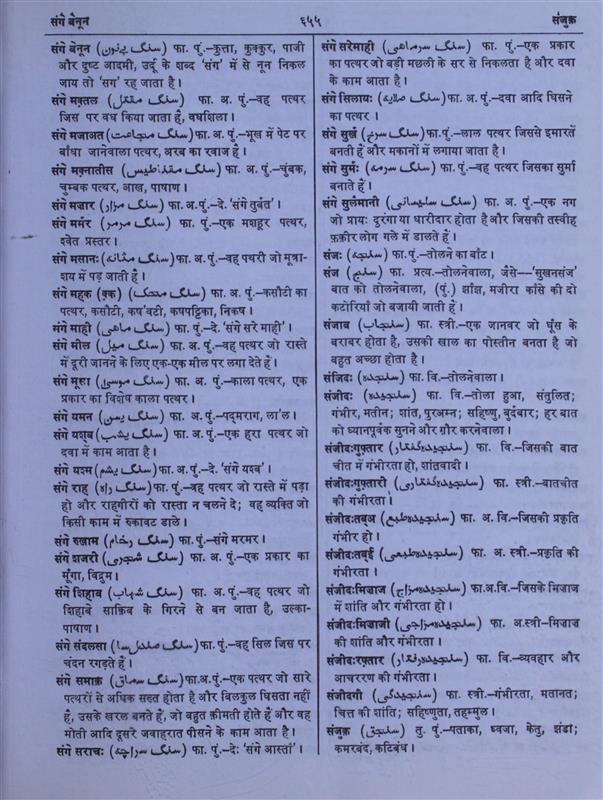 संगे बेनून
६५५
संजुक़
संगे बेनून (سنگ بےنون) फा. पुं.–कुत्ता, कुक्कुर, पाजी
और दुष्ट आदमी, उर्दू के शब्द 'संग' में से नून निकल
जाय तो 'सग' रह जाता है।
संगे मक़्तल (سنگ مقتل) फा. अ. पुं.–वह पत्थर
जिस पर वध किया जाता है, वधशिला।
संगे मजाअत (سنگ مجاعت) फा. अ. पुं.–भूख में पेट पर
बाँधा जानेवाला पत्थर, अरब का रवाज है।
संगे मक़्नातीस (سنگ مقناطیس) फा. अ. पुं.–चुंबक,
चुम्बक पत्थर, आख, पाषाण।
संगे मज़ार (سنگ مزار) फा. अ.पुं.–दे. 'संगे तुर्बत'।
संगे मर्मर (سنگ مرمر) फा. पुं.–एक मशहूर पत्थर,
श्वेत प्रस्तर।
संगे मसानः (سنگ مثانہ) फा. अ. पुं.–वह पथरी जो मूत्रा-
शय में पड़ जाती है।
संगे महक (क्क) (سنگ محک) फा. अ. पुं.–कसौटी का
पत्थर, कसौटी, कष'वटी, कषपट्टिका, निकष।
संगे माही (سنگ ماهی) फा. पुं.–दे. 'संगे सरे माही'।
संगे मील (سنگ میل) फा. अ. पुं.–वह पत्थर जो रास्ते
में दूरी जानने के लिए एक-एक मील पर लगा देते हैं।
संगे मूसा (سنگ موسیٰ) फा. अ. पुं.–काला पत्थर, एक
प्रकार का विशेष काला पत्थर।
संगे यमन (سنگ یمن) फा. अ. पुं.–पद्मराग, ला'ल।
संगे यशब (سنگ یشب) फा. अ. पुं.–एक हरा पत्थर जो
दवा में काम आता है।
संगे यश्म (سنگ یشم) फा. अ. पुं.–दे. 'संगे यश्ब'।
संगे राह (سنگ راہ) फा. पुं.–वह पत्थर जो रास्ते में पड़ा
हो और राहगीरों को रास्ता न चलने दे; वह व्यक्ति जो
किसी काम में रुकावट डाले।
संगे रुख़ाम (سنگ رخام) फा. पुं.–संगे मरमर।
संगे शजरी (سنگ شجری) फा. अ. पुं.–एक प्रकार का
मूँगा, विद्रुम।
संगे शिहाब (سنگ شہاب) फा. अ. पुं.–वह पत्थर जो
शिहाबे साक़िब के गिरने से बन जाता है, उल्का-
पाषाण।
संगे संदलसा (سنگ صندل سا) फा. पुं.–वह सिल जिस पर
चंदन रगड़ते हैं।
संगे समाक़ (سنگ سماق) फा.अ. पुं.–एक पत्थर जो सारे
पत्थरों से अधिक सख्त होता है और बिलकुल घिसता नहीं
है, उसके खरल बनते हैं, जो बहुत क़ीमती होते हैं और वह
मोती आदि दूसरे जवाहरात पीसने के काम आता है।
संगे सराचः (سنگ سراچہ) फा. पुं.–दे: 'संगे आस्ताँ'।
संगे सरेमाही (سنگ سرماهی) फा. पुं.–एक प्रकार
का पत्थर जो बड़ी मछली के सर से निकलता है और दवा
के काम आता है।
संगे सिलायः (سنگ صلایہ) फा. अ. पुं.–दवा आदि घिसने
का पत्थर।
संगे सुर्ख़ (سنگ سرخ) फा. पुं.–लाल पत्थर जिससे इमारतें
बनती हैं और मकानों में लगाया जाता है।
संगे सुर्मः (سنگ سرمہ) फा. पुं.–वह पत्थर जिसका सुर्मा
बनाते हैं।
संगे सुलैमानी (سنگ سلیمانی) फा. अ. पुं.–एक नग
जो प्रायः दुरंगा या धारीदार होता है और जिसकी तस्बीह
फ़क़ीर लोग गले में डालते हैं।
संजः (سنجہ) फा. पुं.–तोलने का बाँट।
संज (سنج) फा. प्रत्य.–तोलनेवाला, जैसे–'सुखनसंज'
बात को तोलनेवाला, (पुं.) झाँझ, मजीरा काँसे की दो
कटोरियाँ जो बजायी जाती हैं।
संजाब (سنجاب) फा. स्त्री.–एक जानवर जो घूँस के
बराबर होता है, उसकी खाल का पोस्तीन बनता है जो
बहुत अच्छा होता है।
संजिदः (سنجدہ) फा. वि.–तोलनेवाला।
संजीदः (سنجیدہ) फा. वि.–तोला हुआ, संतुलित;
गंभीर, मतीन; शांत, पुरअम्न; सहिष्णु, बुर्दबार; हर बात
को ध्यानपूर्वक सुनने और ग़ौर करनेवाला।
संजीदःगुफ़्तार (سنجیدہ گفتار) फा. वि.–जिसकी बात
चीत में गंभीरता हो, शांतवादी।
संजीदःगुफ़्तारी (سنجیدہ گفتاری) फा. स्त्री.–बातचीत
की गंभीरता।
संजीदःतब्अ (سنجیدہ طبع) फा. अ. वि.–जिसकी प्रकृति
गंभीर हो।
संजीदःतबई (سنجیدہ طبعی) फा. अ. स्त्री.–प्रकृति की
गंभीरता।
संजीदःमिज़ाज (سنجیدہ مزاج) फा.अ.वि.–जिसके मिज़ाज
में शांति और गंभीरता हो।
संजीदःमिज़ाजी (سنجیدہ مزاجی) फा.अ.स्त्री–मिज़ाज
की शांति और गंभीरता।
संजीदःरफ़्तार (سنجیدہ رفتار) फा. वि.–व्यवहार और
आचररण की गंभीरता।
संजीदगी (سنجیدگی) फा. स्त्री.–गंभीरता, मतानत;
चित्त की शांति; सहिष्णुता, तहम्मुल।
संजुक़ (سنجق) तु. पुं.–पताका, ध्वजा, केतु, झंडा;
कमरबंद, कटिबंध।